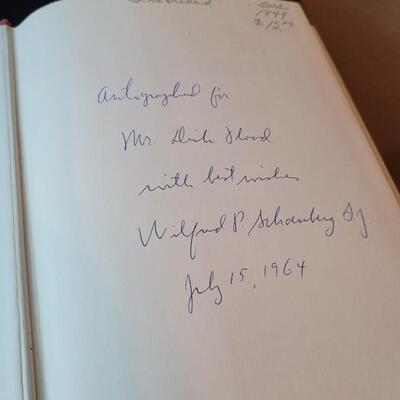 Inscribed
1849
Autographed for
Mr. Dick Flood
with best wishes
Wilfred P. Schoenberg, S.J.
July 15, 1964